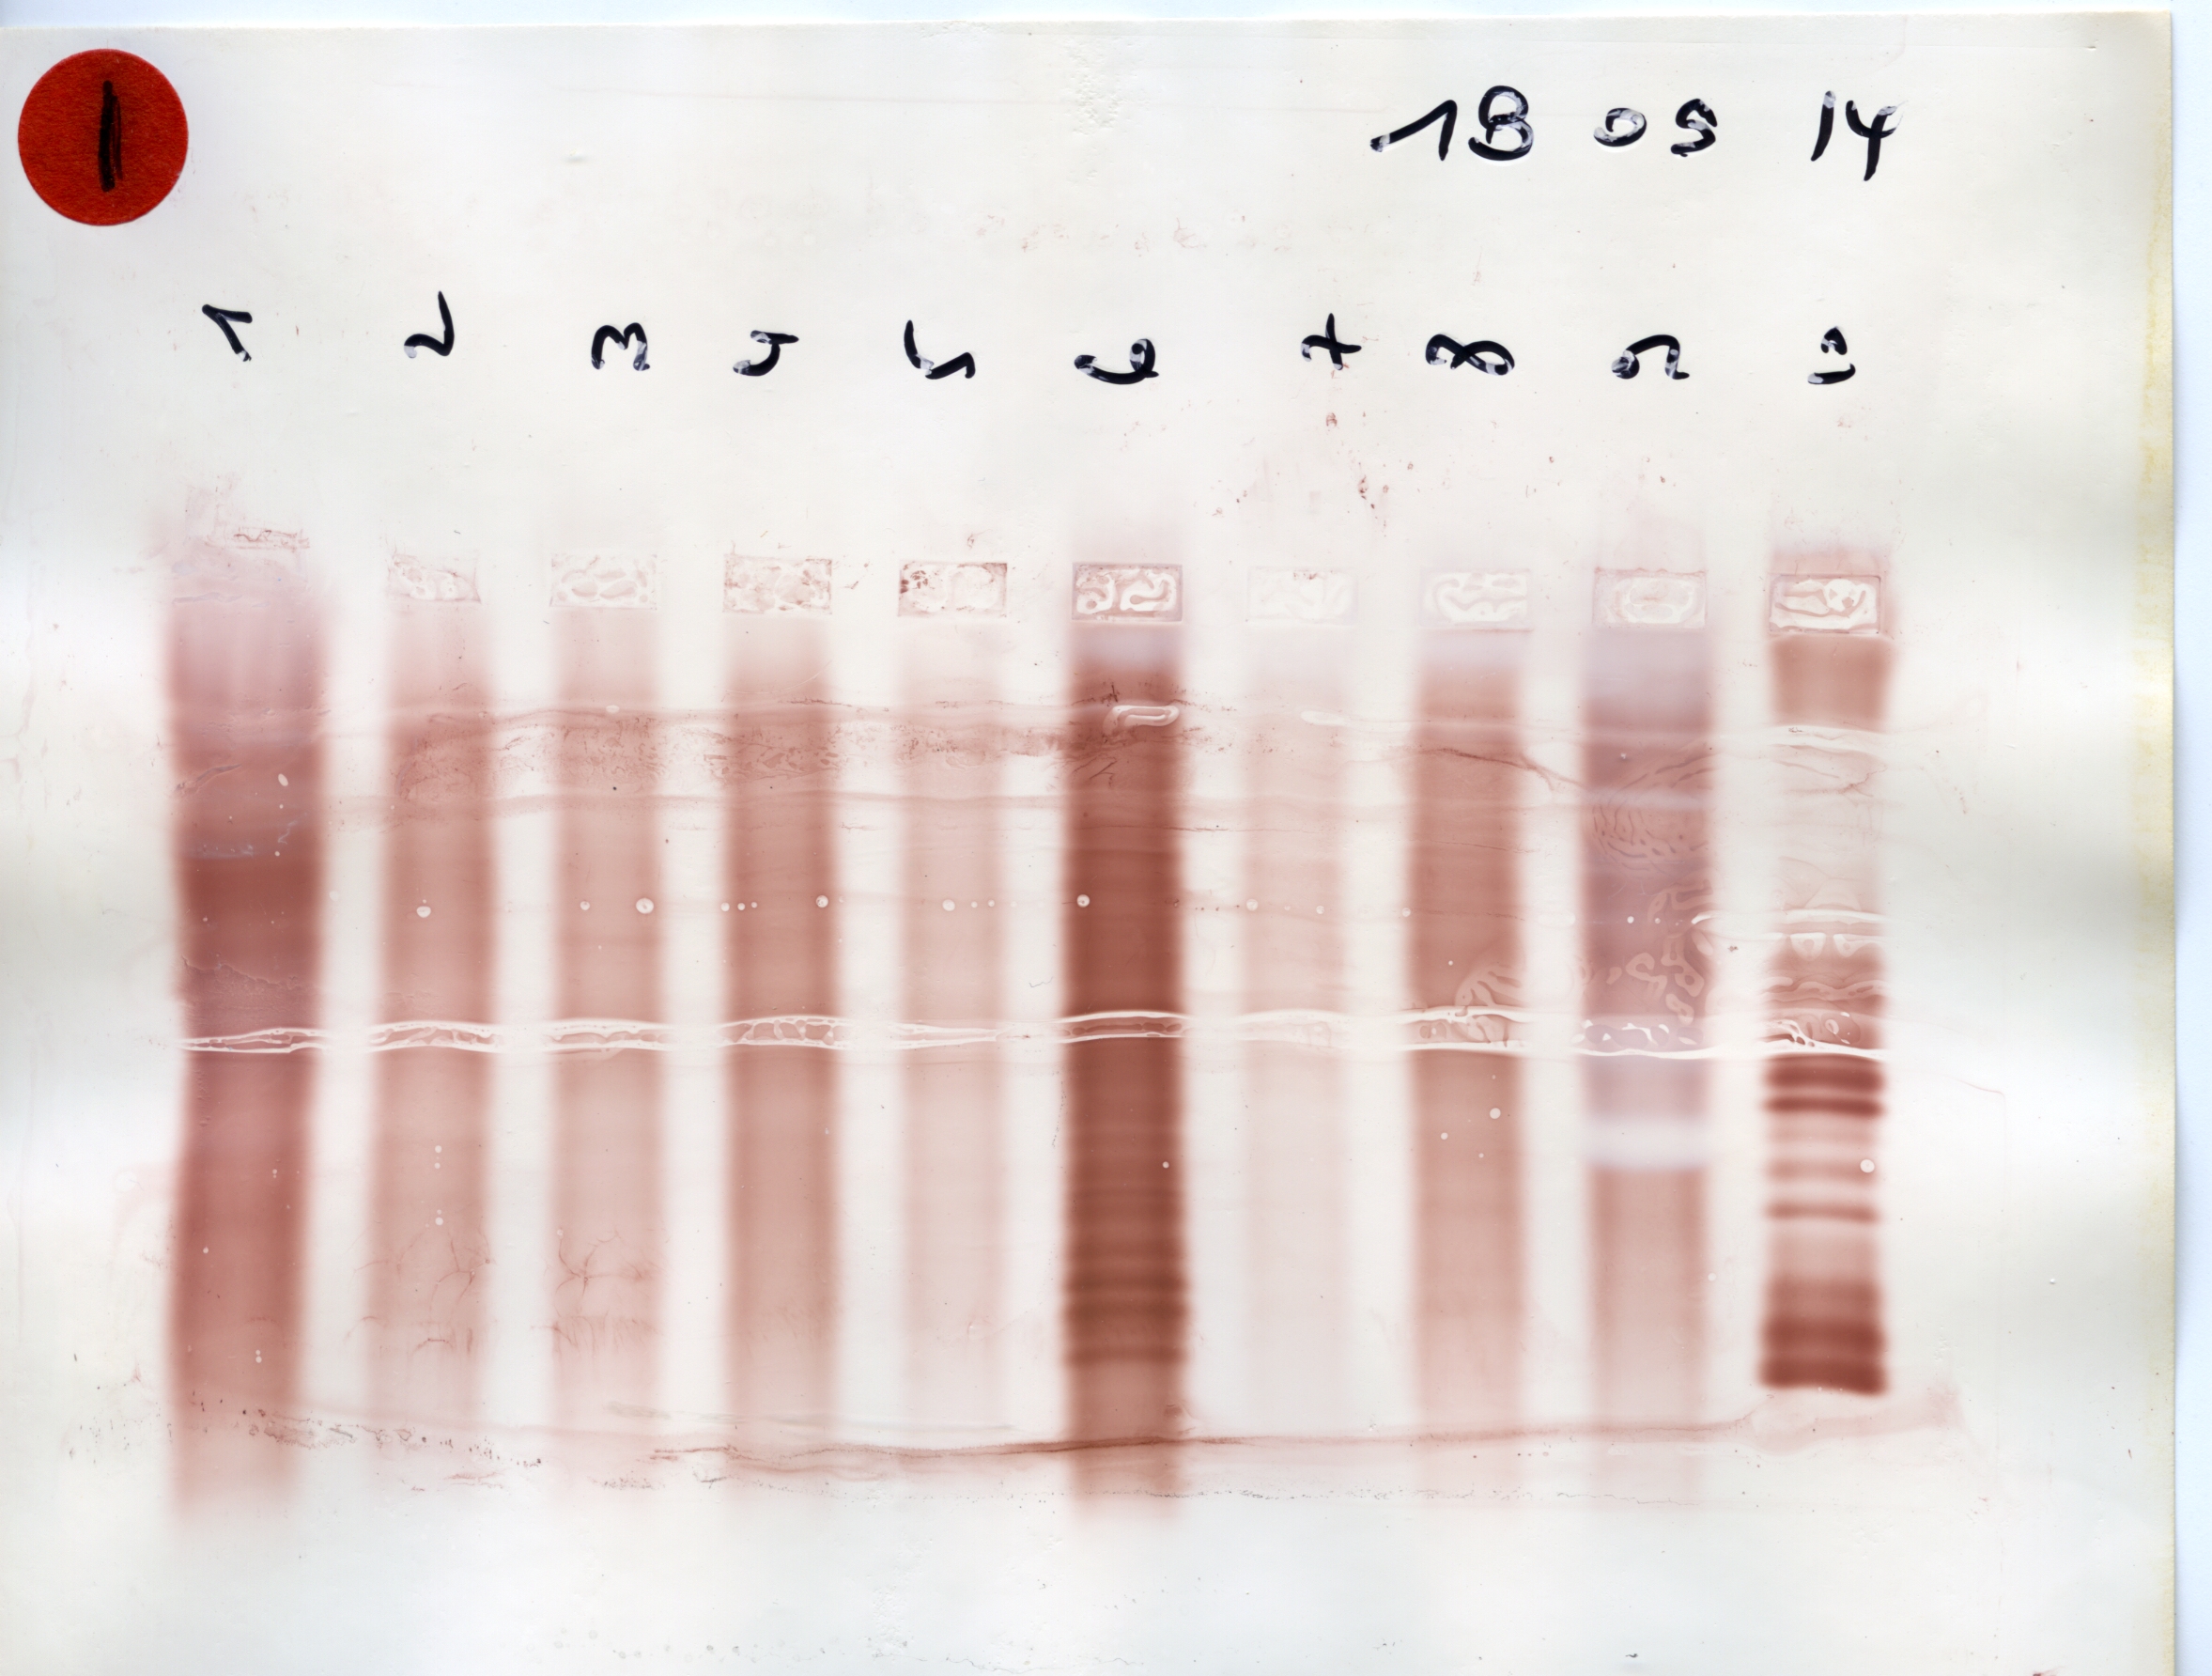 1
18 05 14
1 2 3 4 5 6 7 8 9 10